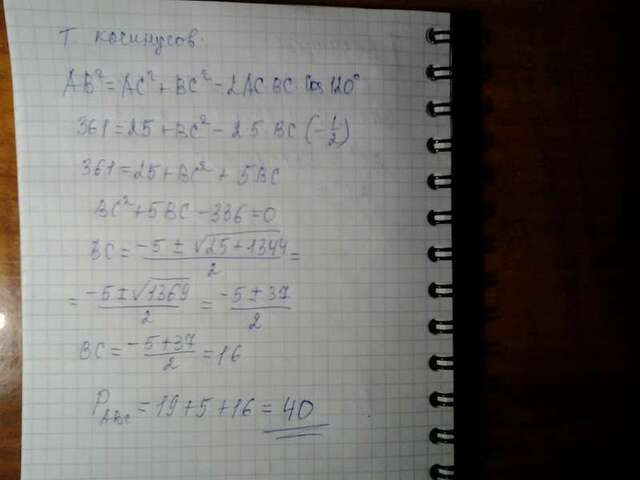 Т. косинусов.
AB² = AC² + BC² - 2AC BC · Cos 120°
361 = 25 + BC² - 2 5 BC (-1/2)
361 = 25 + BC² + 5BC
BC² + 5BC - 336 = 0
BC = (-5 ± √(25 + 1344))/2 =
= (-5 ± √1369)/2 = (-5 ± 37)/2
BC = (-5 + 37)/2 = 16
P_ABC = 19 + 5 + 16 = 40